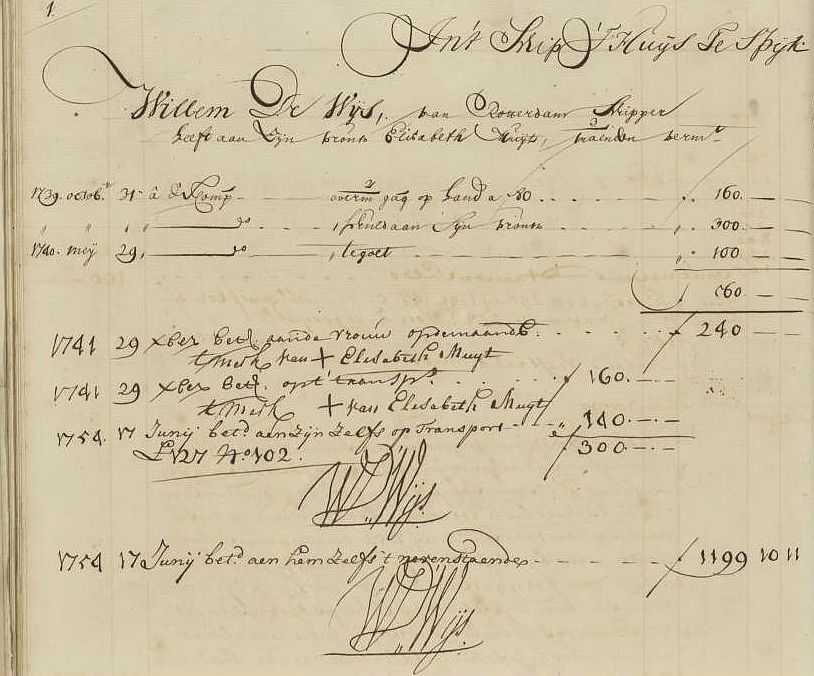 1.
In't Schip 'T Huijs Te Spijk
Willem De Wijs, van Rotterdam Schipper
heeft aan Zyn vrouw Elisabeth Muijt, 3 maenden verm.
1739. octob.r 31 â d'Comp. 2 op hand a 80 160. — —
" " " do Schuld aan Syn vrouw " 300. — —
1740. meij 29, do , tegoet " 100 — —
560. — —
1741 29 xber bet.d aan de vrouw op de maandb. 240 — —
't Merk van + Elisabeth Muyt
1741 29 xber bet.d op 't transp.t 160. — —
't Merk + van Elisabeth Muyt
1754. 17 Junij bet.d aen zijn zelfs op Transport " 140. — —
L 127 No. 102. 300 — —
W. D. Wijs.
1754 17 Junij bet.d aen hem zelfs 't nevenstaende 1199 10 11
W. D. Wijs.